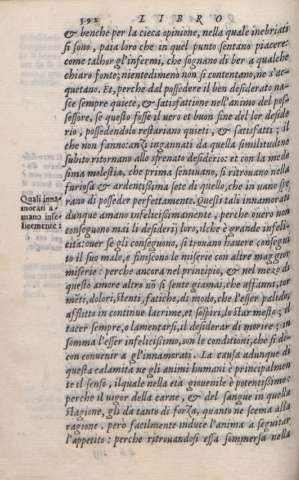 392 LIBRO
& benche per la cieca opinione, nella quale inebriati
si sono, paia loro che in quel punto sentano piacere:
come talhor gl'infermi, che sognano di ber a qualche
chiaro fonte; nientedimeno non si contentano, ne s'ac-
quetano. Et, perche dal possedere il ben desiderato na-
sce sempre quiete, & satisfattione nell'animo del pos-
sessore, se questo fosse il vero et buon fine del lor deside
rio, possedendolo restariano quieti, & satisfatti; il
che non fanno: anzi ingannati da quella similitudine
subito ritornano allo sfrenato desiderio: et con la mede
sima molestia, che prima sentivano, si ritrovano nella
furiosa & ardentissima sete di quello, che in vano spe
rano di posseder perfettamente. Questi tali innamorati
Quali inna-
morati a-
mano infe-
licemente:
dunque amano infelicissimamente, perche overo non
conseguono mai li desiderij loro, ilche è grande infeli-
cità: over se gli conseguono, si trovano havere consegui
to il suo male, e finiscono le miserie con altre maggior
miserie: perche ancora nel principio, & nel mezo di
questo amore altro nō si sente giamai, che affanni, tor
mēti, dolori, stenti, fatiche, di modo, che l'esser pallido,
afflitto in continue lacrime, et sospiri, lo star mesto, il
tacer sempre, o lamentarsi, il desiderar di morire; in
somma l'esser infelicissimo, son le conditioni, che si di-
con convenir a gl'innamorati. La causa adunque di
questa calamita ne gli animi humani è principalmen
te il senso, ilquale nella età giovenile è potentissimo:
perche il vigor della carne, & del sangue in quella
stagione, gli da tanto di forza, quanto ne scema alla
ragione, pero facilmente induce l'anima a seguitar
l'appetito: perche ritrovandosi essa sommersa nella